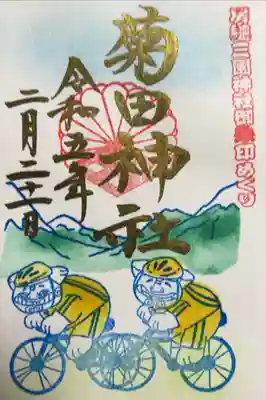 三園神社御朱印めぐり
菊田神社
令和五年
二月二十一日